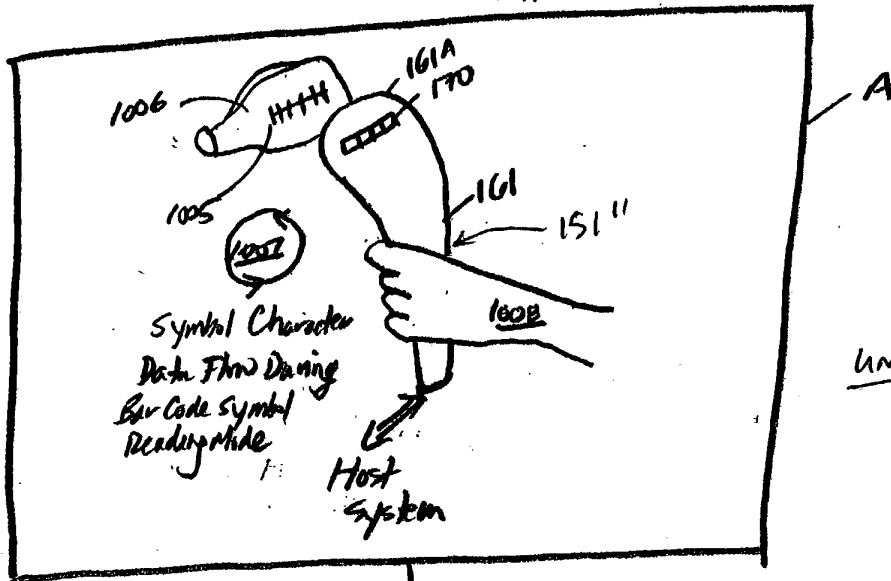 161A
170
1006
A
161
1005
151"
1007
1008
Symbol Character
Data Flow During
Bar Code Symbol
Reading Mode
Host
System